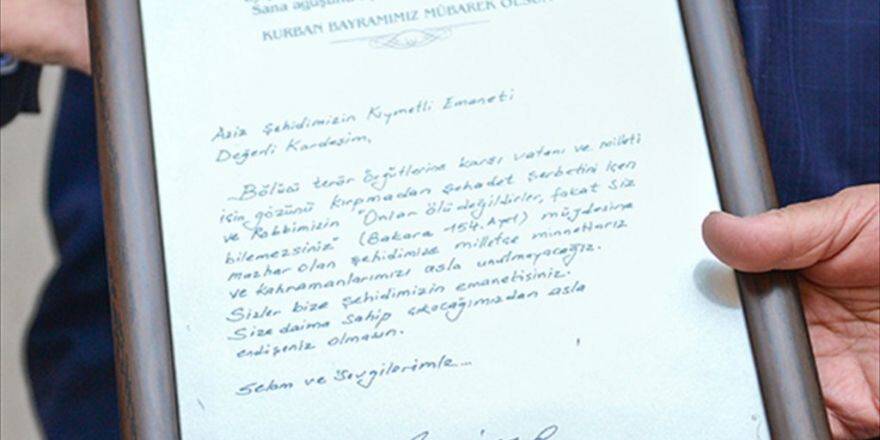 Sana ağuşunu
KURBAN BAYRAMIMIZ MÜBAREK OLSUN
Aziz Şehidimizin Kıymetli Emaneti
Değerli Kardeşim,
Bölücü terör örgütlerine karşı vatanı ve milleti
için gözünü kırpmadan şehadet şerbetini içen
ve Rabbimizin "Onlar ölü değildirler, fakat siz
bilemezsiniz" (Bakara -154. Ayet) müjdesine
mazhar olan şehidimize milletçe minnettarız
ve kahramanlarımızı asla unutmayacağız.
Sizler bize şehidimizin emanetisiniz.
Size daima sahip çıkacağımızdan asla
endişeniz olmasın.
Selam ve Sevgilerimle...